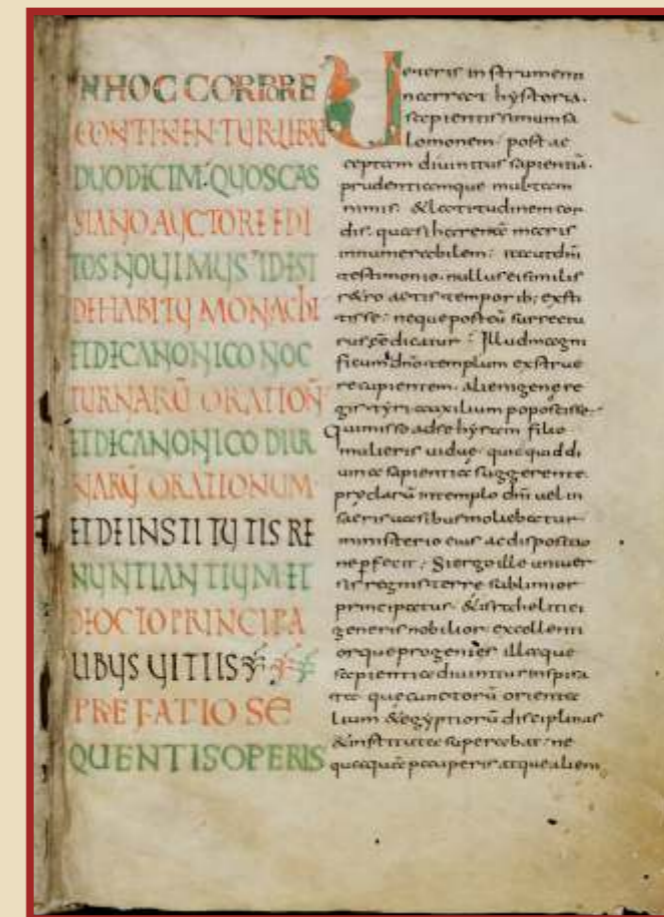 IN HOC CORPORE
CONTINENTUR LIBRI
DUODICIM QUOS CAS
SIANO AUCTORE EDI
TOS NOUIMUS IDEST
DE HABITU MONACHI
ET DE CANONICO NOC
TURNARŪ ORATION̄
ET DE CANONICO DIUR
NARŪ ORATIONUM
ET DE INSTITUTIS RE
NUNTIANTIUM ET
DE OCTO PRINCIPA
LIBUS UITIIS
PREFATIO SE
QUENTIS OPERIS
Ueteris instrumenti
narrat hystoria
sapientissimum sa
lomonem post ac
ceptam diuinitus sapientiā
prudentiamque multam
nimis & latitudinem cor
dis quasi harenā maris
innumerabilem ita ut dn̄i
testimonio nullus ei similis
r&ro actis temporib; exsti
tisse neque post eū surrectu
rus p̄dicatur Illud magni
ficum dn̄o templum exstrue
re cupientem alienigene re
gis tyri auxilium poposcisse
Qui misso ad se hyram filio
mulieris uiduę quicquid di
uina sapientia suggerente
pręclarū in templo dn̄i uel in
sacris uasibus moliebatur
ministerio eius ac dispositio
ne pfecit Si ergo ille uniuer
sis regnis terre sublimior
principatus & israhelitici
generis nobilior excellenti
orque progenies illaque
sapientia diuinitus inspira
ta que cunctorū orienta
lium & egyptiorū disciplinas
& instituta superabat ne
quaquā pauperis atque alieni